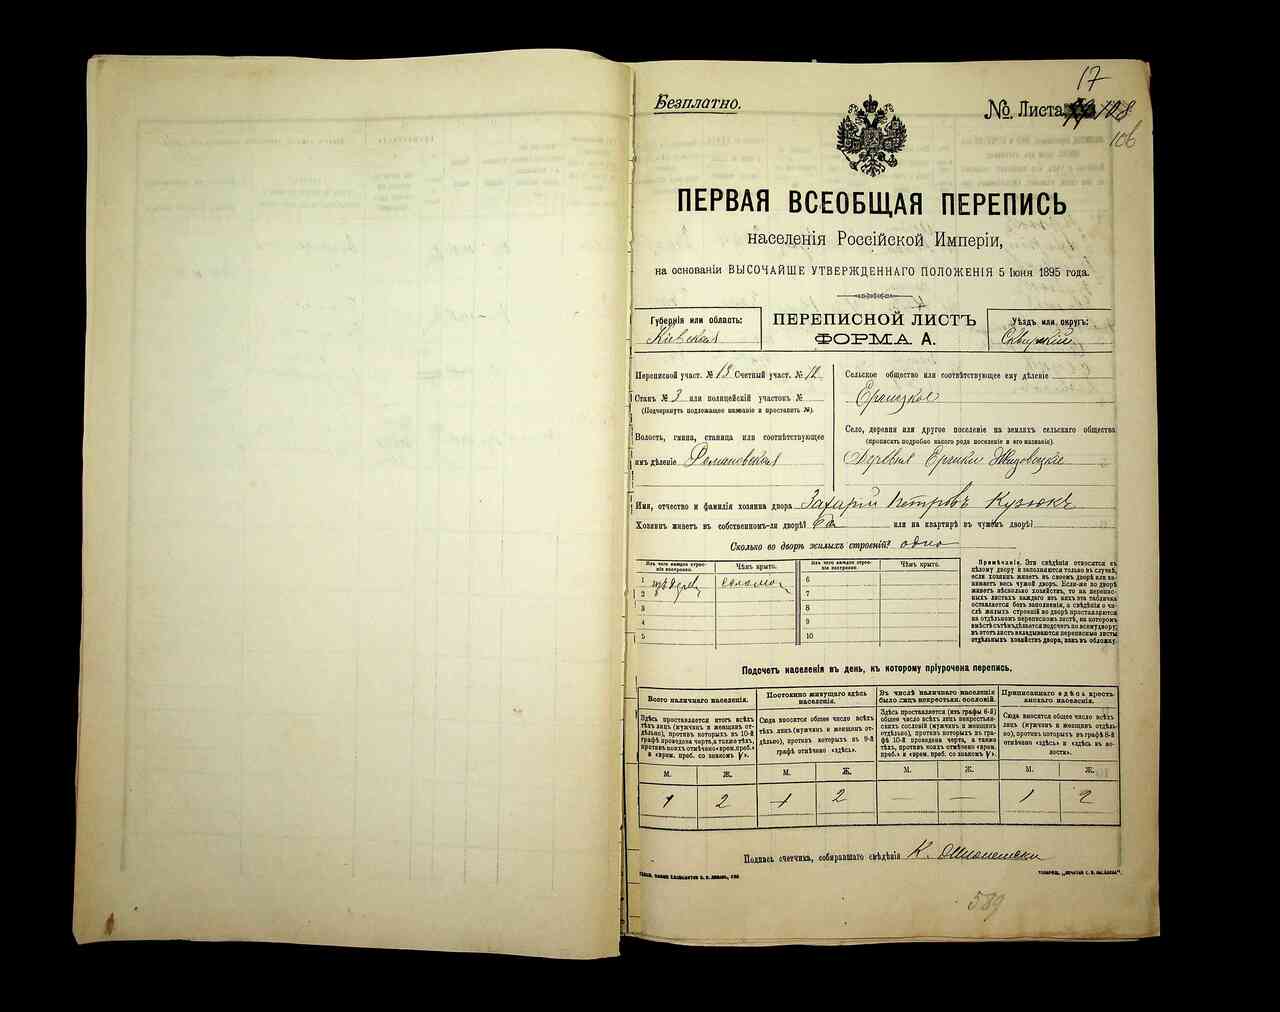 17
Безплатно.
№ Листа 128
106
ПЕРВАЯ ВСЕОБЩАЯ ПЕРЕПИСЬ
населенія Россійской Имперіи,
на основаніи ВЫСОЧАЙШЕ УТВЕРЖДЕННАГО ПОЛОЖЕНІЯ 5 Іюня 1895 года.
Губернія или область:
Кіевская
ПЕРЕПИСНОЙ ЛИСТЪ
ФОРМА А.
Уѣздъ или округъ:
Сквирскій
Переписной участ. № 13 Счетный участ. № 12
Станъ № 3 или полицейскій участокъ №
(Подчеркнуть подлежащее названіе и проставить №).
Волость, гмина, станица или соотвѣтствующее
имъ дѣленіе Романовская
Сельское общество или соотвѣтствующее ему дѣленіе
Ерчицкое
Село, деревня или другое поселеніе на земляхъ сельскаго общества
(прописать подробно какого рода поселеніе и его названіе).
Деревня Ерчики
Имя, отчество и фамилія хозяина двора Захарій Петровъ Кузюкъ
Хозяинъ живетъ въ собственномъ-ли дворѣ? Да или на квартирѣ въ чужомъ дворѣ?
Сколько во дворѣ жилыхъ строеній? одно
Изъ чего каждое строеніе построено. Чѣмъ крыто. Изъ чего каждое строеніе построено. Чѣмъ крыто.
1 солом 6
2 7
3 8
4 9
5 10
Примѣчаніе. Эти свѣдѣнія относятся къ
цѣлому двору и заполняются только въ случаѣ,
если хозяинъ живетъ въ своемъ дворѣ или занимаетъ весь чужой дворъ. Если-же во дворѣ
живетъ нѣсколько хозяйствъ, то на переписныхъ листахъ каждаго изъ нихъ эта табличка
оставляется безъ заполненія, а свѣдѣнія о числѣ жилыхъ строеній во дворѣ проставляются
на отдѣльномъ переписномъ листѣ, на которомъ
вмѣстѣ съ тѣмъ дѣлается подсчетъ по всему двору;
въ этотъ листъ вкладываются переписные листы
отдѣльныхъ хозяйствъ двора, какъ въ обложку.
Подсчетъ населенія въ день, къ которому пріурочена перепись.
Всего наличнаго населенія. Постоянно живущаго здѣсь населенія. Въ числѣ наличнаго населенія было лицъ некрестьян. сословій. Приписаннаго здѣсь крестьянскаго населенія.
Здѣсь проставляется итогъ всѣхъ лицъ (мужчинъ и женщинъ отдѣльно), противъ которыхъ въ 10-й графѣ проведена черта, а также тѣхъ, противъ коихъ отмѣчено «врем. преб.» и «врем. преб. со знакомъ V».
Сюда вносится общее число всѣхъ тѣхъ лицъ (мужчинъ и женщинъ отдѣльно), противъ которыхъ въ 9-й графѣ отмѣчено «здѣсь».
Здѣсь проставляется (изъ графы 6-й) общее число всѣхъ лицъ некрестьянскихъ сословій (мужчинъ и женщинъ отдѣльно), противъ которыхъ въ графѣ 10-й проведена черта, а также тѣхъ, противъ коихъ отмѣчено «врем. преб.» и «врем. преб. со знакомъ V».
Сюда вносится общее число всѣхъ лицъ (мужчинъ и женщинъ отдѣльно), противъ которыхъ въ графѣ 8-й отмѣчено «здѣсь» и «здѣсь въ волости».
М. Ж. М. Ж. М. Ж. М. Ж.
1 2 1 2 — — 1 2
Подпись счетчика, собиравшаго свѣдѣнія К.
589